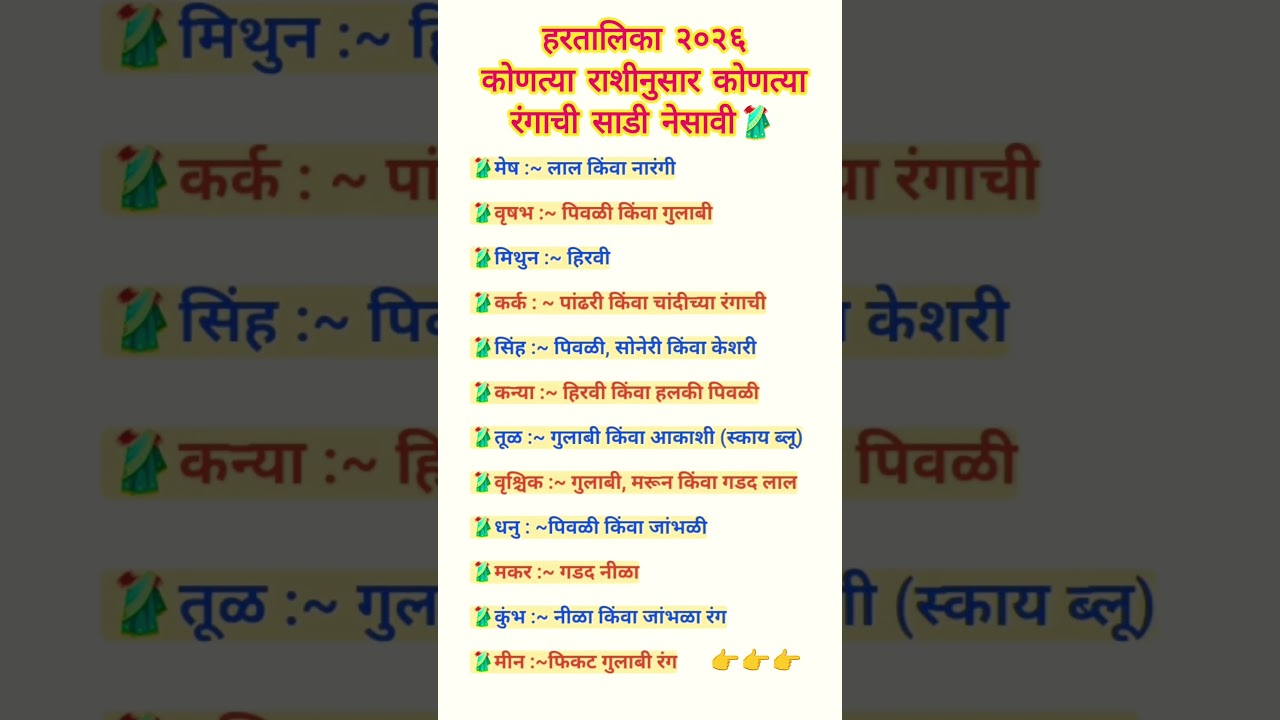 हरतालिका २०२६
कोणत्या राशीनुसार कोणत्या
रंगाची साडी नेसावी🥻
🥻मेष :~ लाल किंवा नारंगी
🥻वृषभ :~ पिवळी किंवा गुलाबी
🥻मिथुन :~ हिरवी
🥻कर्क : ~ पांढरी किंवा चांदीच्या रंगाची
🥻सिंह :~ पिवळी, सोनेरी किंवा केशरी
🥻कन्या :~ हिरवी किंवा हलकी पिवळी
🥻तूळ :~ गुलाबी किंवा आकाशी (स्काय ब्लू)
🥻वृश्चिक :~ गुलाबी, मरून किंवा गडद लाल
🥻धनु : ~पिवळी किंवा जांभळी
🥻मकर :~ गडद नीळा
🥻कुंभ :~ नीळा किंवा जांभळा रंग
🥻मीन :~फिकट गुलाबी रंग 👉👉👉